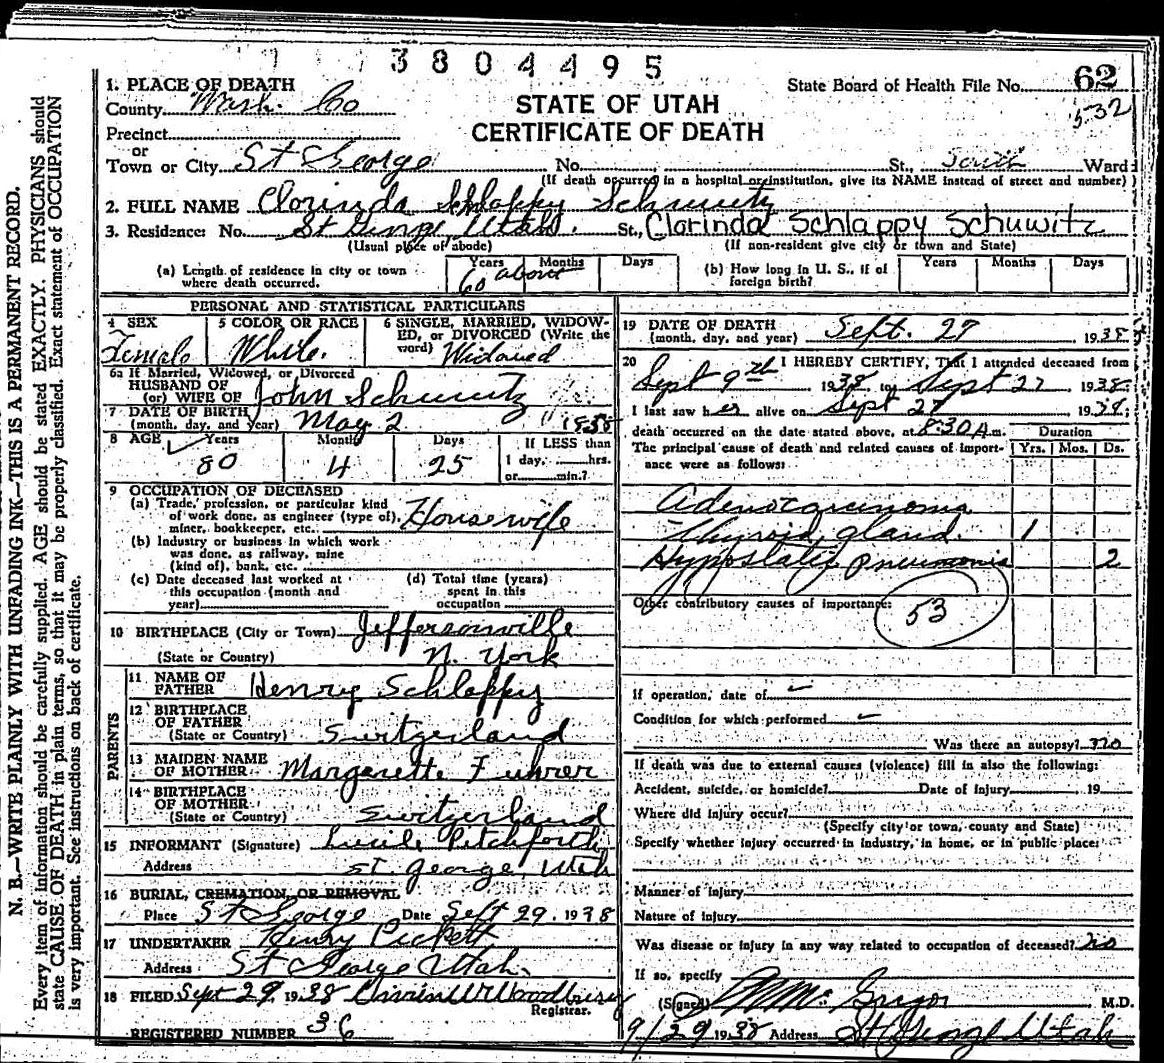 3804495
1. PLACE OF DEATH
State Board of Health File No. 62
County Wash. Co
STATE OF UTAH
532
CERTIFICATE OF DEATH
Precinct
or
Town or City St George No. St., South Ward
(If death occurred in a hospital or institution, give its NAME instead of street and number)
2. FULL NAME Clorinda Schlappy Schuwitz
3. Residence: No. St George Utah. St., Clarinda Schlappy Schuwitz
(Usual place of abode) (If non-resident give city or town and State)
(a) Length of residence in city or town where death occurred. Years Months Days
60 about
(b) How long in U. S., if of foreign birth? Years Months Days
PERSONAL AND STATISTICAL PARTICULARS
4 SEX
Female
5 COLOR OR RACE
White.
6 SINGLE, MARRIED, WIDOW-
ED, or DIVORCED (Write the
word) Widowed
6a If Married, Widowed, or Divorced
HUSBAND OF
(or) WIFE OF John Schuwitz
7 DATE OF BIRTH
(month, day, and year) May 2 1858
8 AGE Years Months Days If LESS than
80 4 25 1 day, hrs.
or min.?
9 OCCUPATION OF DECEASED
(a) Trade, profession, or particular kind
of work done, as engineer (type of),
miner, bookkeeper, etc. Housewife
(b) Industry or business in which work
was done, as railway, mine
(kind of), bank, etc.
(c) Date deceased last worked at
this occupation (month and
year)
(d) Total time (years)
spent in this
occupation
10 BIRTHPLACE (City or Town) Jeffersonville
(State or Country) N. York
PARENTS
11 NAME OF
FATHER Henry Schlappy
12 BIRTHPLACE
OF FATHER
(State or Country) Switzerland
13 MAIDEN NAME
OF MOTHER Margarette Fuhrer
14 BIRTHPLACE
OF MOTHER
(State or Country) Switzerland
15 INFORMANT (Signature) Lucile Pitchforth
Address St. George, Utah
16 BURIAL, CREMATION, OR REMOVAL
Place St George Date Sept 29, 1938
17 UNDERTAKER Henry Pickett
Address St George Utah.
18 FILED Sept 29, 1938 Woodbury
Registrar.
REGISTERED NUMBER 36
19 DATE OF DEATH
(month, day, and year) Sept. 27 1938
20 I HEREBY CERTIFY, That I attended deceased from
Sept 9th 1938, to Sept 27 1938
I last saw her alive on Sept 27 1938;
death occurred on the date stated above, at 8:30 A.m.
Duration
The principal cause of death and related causes of import-
ance were as follows:
Yrs. Mos. Ds.
Adenocarcinoma
Thyroid gland. 1
Hypostatic pneumonia 2
Other contributory causes of importance:
53
If operation, date of
Condition for which performed
Was there an autopsy? no
If death was due to external causes (violence) fill in also the following:
Accident, suicide, or homicide? Date of injury 19
Where did injury occur?
(Specify city or town, county and State)
Specify whether injury occurred in industry, in home, or in public place:
Manner of injury
Nature of injury
Was disease or injury in any way related to occupation of deceased? no
If so, specify
(Signed) McGregor M.D.
9/29 1938 Address St George Utah
N. B.—WRITE PLAINLY WITH UNFADING INK—THIS IS A PERMANENT RECORD.
Every item of information should be carefully supplied. AGE should be stated EXACTLY. PHYSICIANS should
state CAUSE OF DEATH in plain terms, so that it may be properly classified. Exact statement of OCCUPATION
is very important. See instructions on back of certificate.